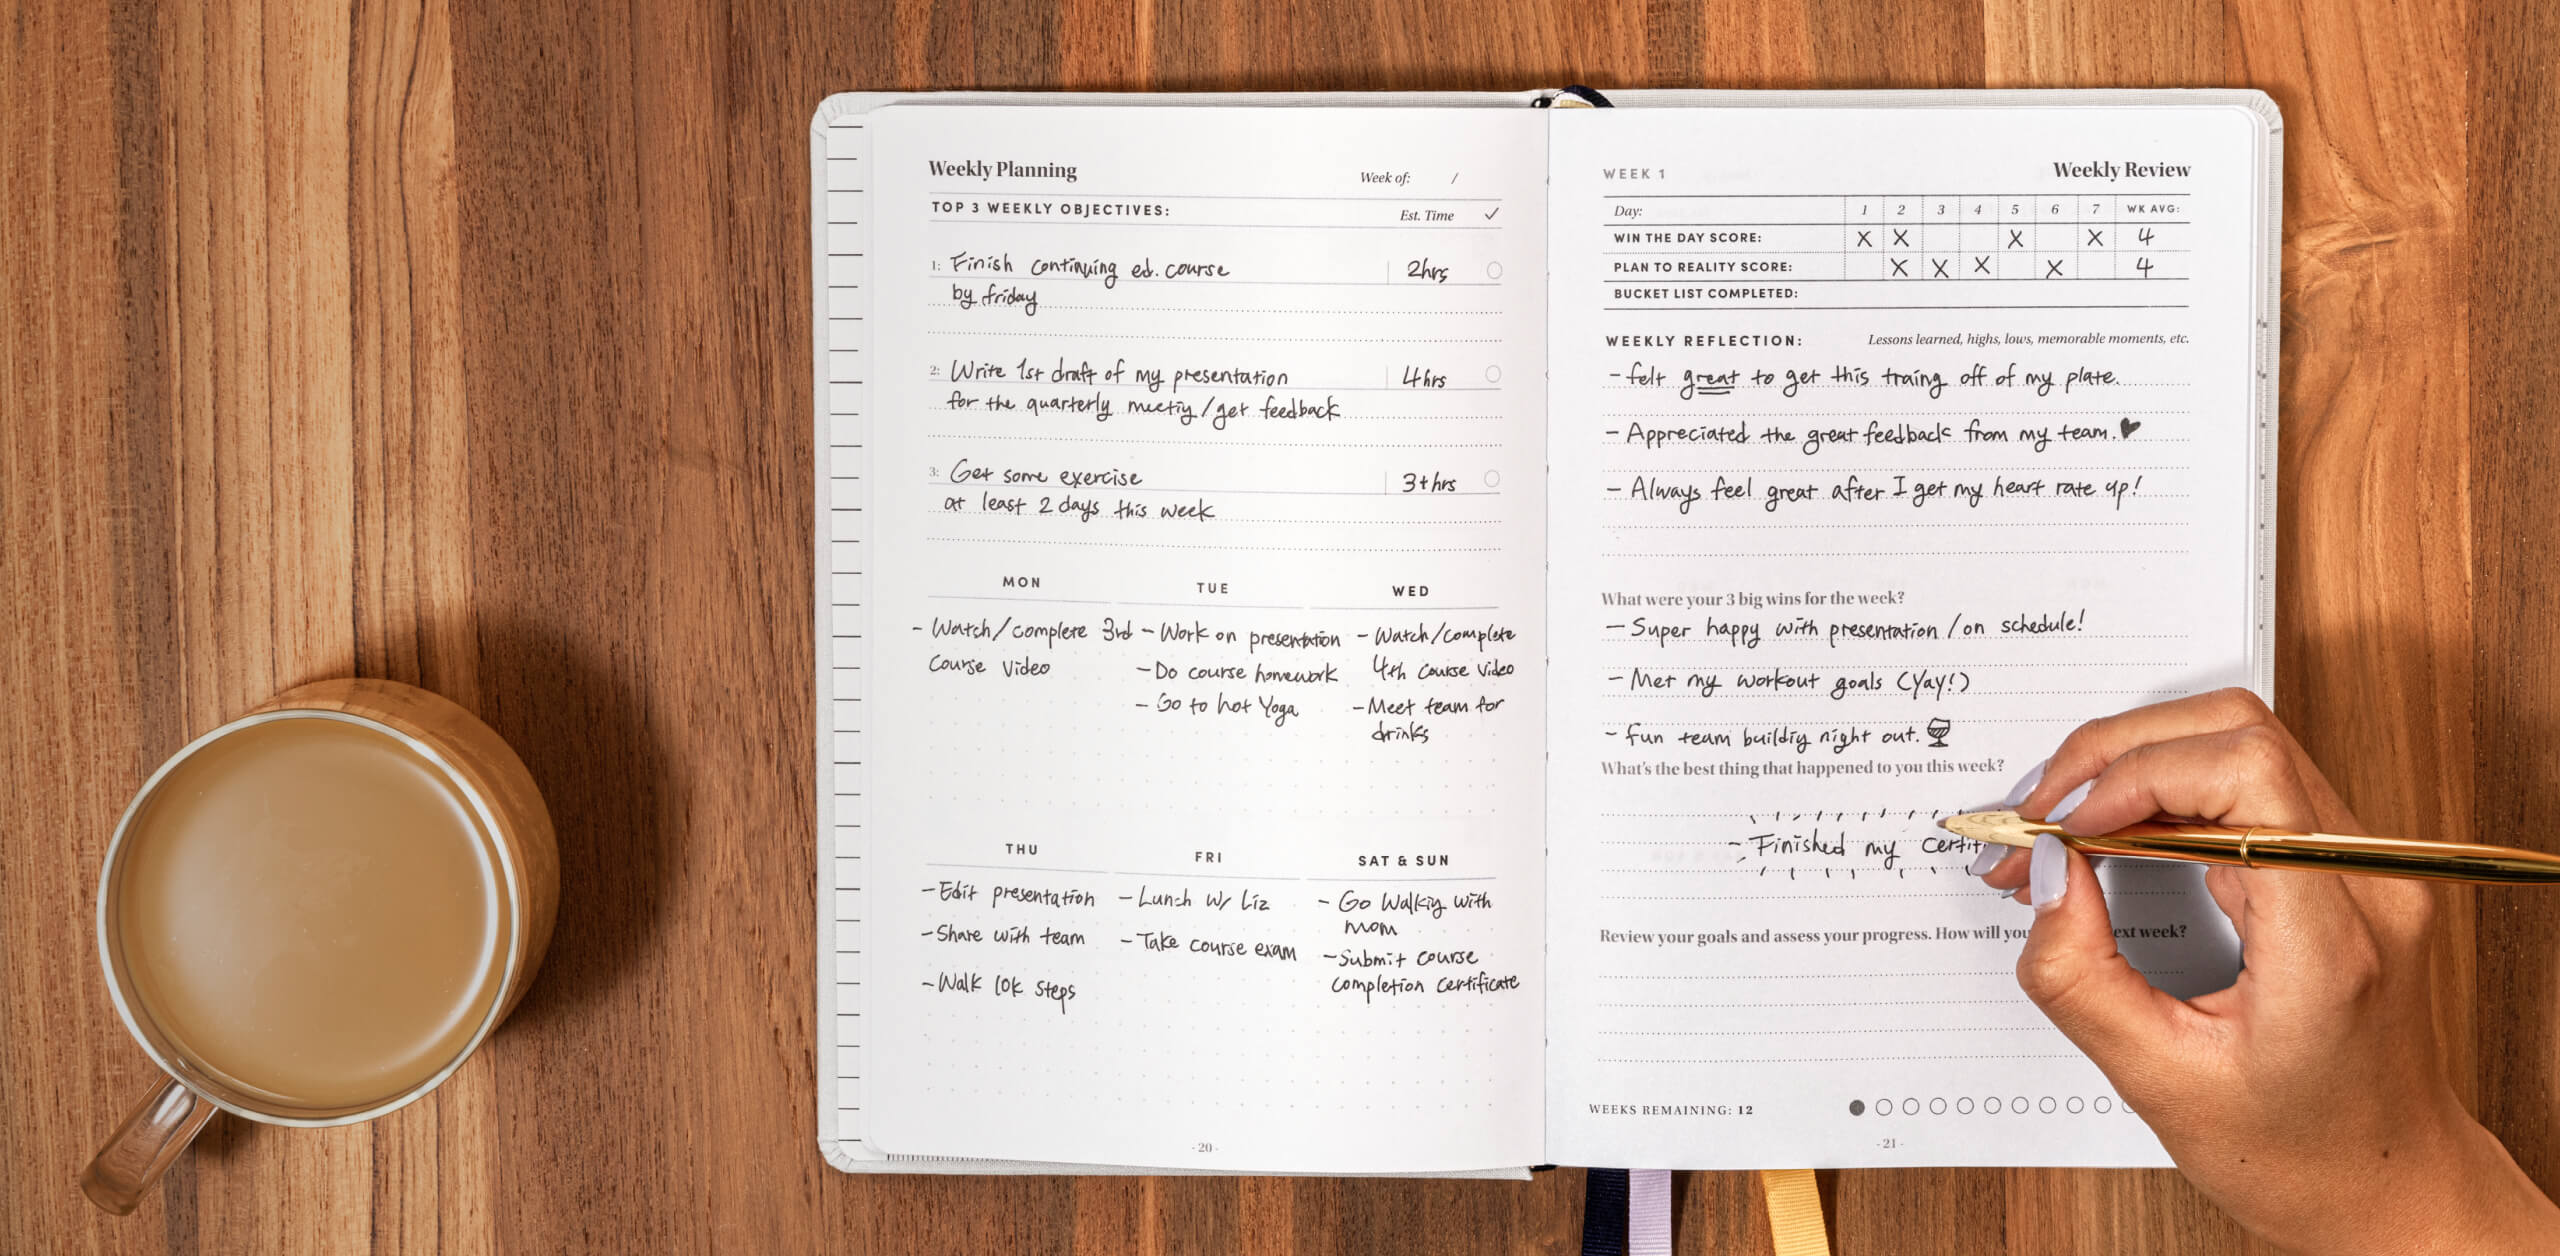 Weekly Planning
Week of: /
TOP 3 WEEKLY OBJECTIVES:
Est. Time ✓
1: Finish continuing ed. course 2hrs
by friday
2: Write 1st draft of my presentation 4hrs
for the quarterly meetiy/get feedback
3: Get some exercise 3+hrs
at least 2 days this week
MON
- Watch/complete 3rd
Course Video
TUE
- Work on presentation
- Do course homework
- Go to hot Yoga
WED
- Watch/Complete
4th Course Video
- Meet team for
drinks
THU
- Edit presentation
- Share with team
- Walk 10k steps
FRI
- Lunch w/ Liz
- Take course exam
SAT & SUN
- Go Walkiy with
mom
- Submit course
completion certificate
- 20 -
WEEK 1
Weekly Review
Day: 1 2 3 4 5 6 7 WK AVG:
WIN THE DAY SCORE: X X X X 4
PLAN TO REALITY SCORE: X X X X 4
BUCKET LIST COMPLETED:
WEEKLY REFLECTION: Lessons learned, highs, lows, memorable moments, etc.
- felt great to get this traing off of my plate.
- Appreciated the great feedback from my team. ♥
- Always feel great after I get my heart rate up!
What were your 3 big wins for the week?
- Super happy with presentation/on schedule!
- Met my workout goals (Yay!)
- fun team buildiy night out.
What's the best thing that happened to you this week?
- Finished my Certif
Review your goals and assess your progress. How will you ext week?
WEEKS REMAINING: 12
- 21 -